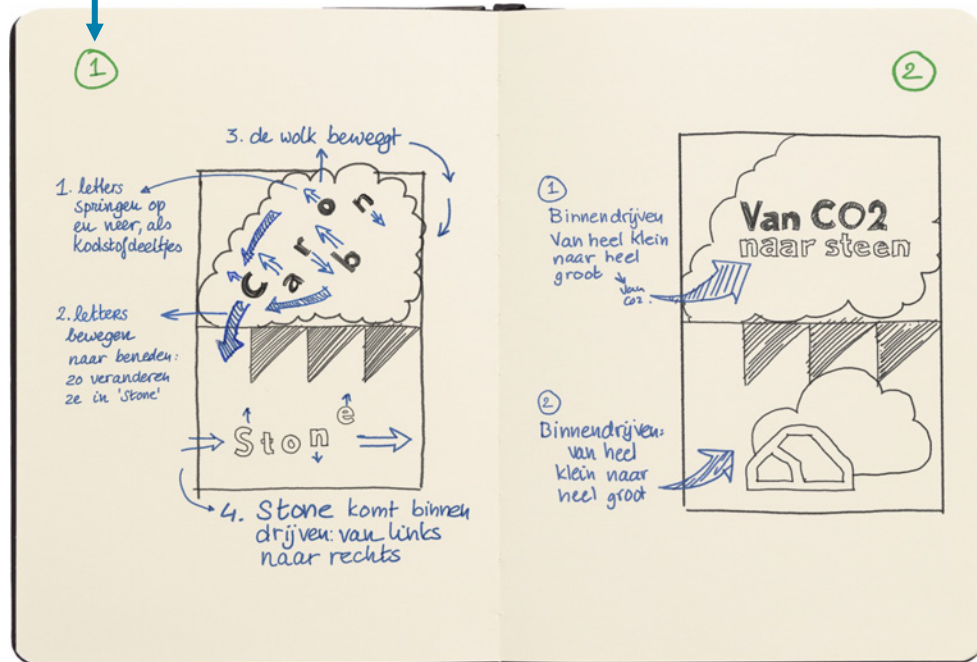 1
3. de wolk beweegt
1. letters
springen op
en neer, als
koolstofdeeltjes
Carbon
2. letters
bewegen
naar beneden:
zo veranderen
ze in 'Stone'
Stone
4. Stone komt binnen
drijven: van links
naar rechts
2
1
Binnendrijven
Van heel klein
naar heel
groot
Van
CO2.
Van CO2
naar steen
2
Binnendrijven:
van heel
klein naar
heel groot